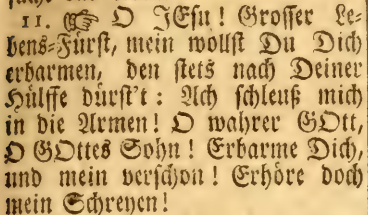 11. ☞ O JEſu! Groſſer Le-
bens-Fürſt, mein wollſt Du Dich
erbarmen, den ſtets nach Deiner
Hülffe dürſt't: Ach ſchleuß mich
in die Armen! O wahrer GOtt,
O GOttes Sohn! Erbarme Dich,
und mein verſchon! Erhöre doch
mein Schreyen!